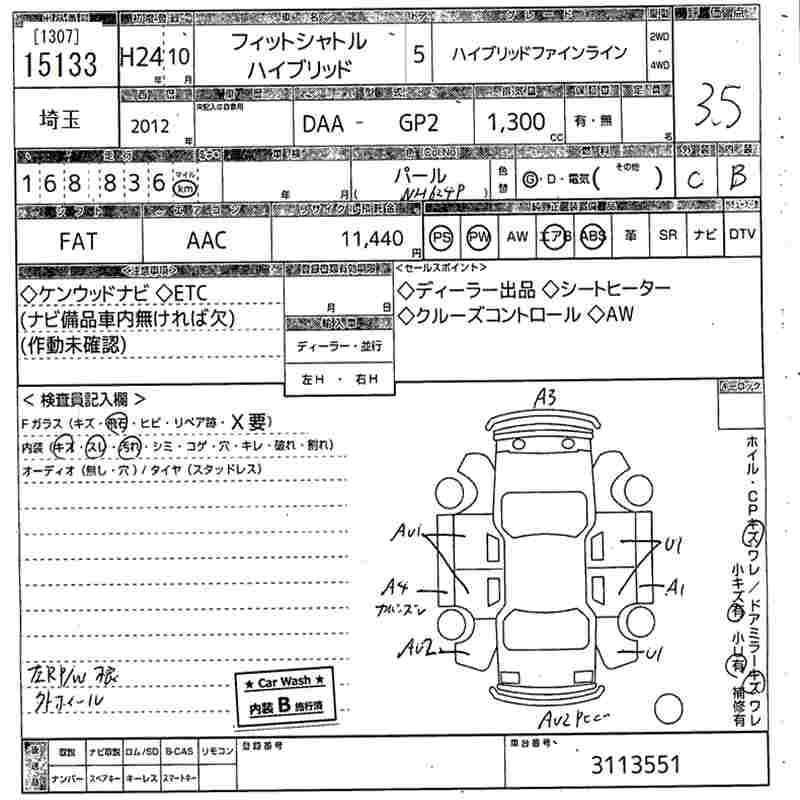 [1307]
15133
H24 10
年 月
フィットシャトル
ハイブリッド
5
ハイブリッドファインライン
2WD
・
4WD
3.5
埼玉
2012 年
DAA - GP2
1,300 CC
有・無
名
168,836
マイル
km
年 月
パール
( NH624P )
色替
Ⓖ・D・電気( その他 )
C B
FAT
AAC
リサイクル預託金
11,440 円
PS PW AW エアB ABS 革 SR ナビ DTV
<注意事項>
◇ケンウッドナビ ◇ETC
(ナビ備品車内無ければ欠)
(作動未確認)
登録書類有効期限
月 日
輸入車
ディーラー・並行
左H ・ 右H
<セールスポイント>
◇ディーラー出品 ◇シートヒーター
◇クルーズコントロール ◇AW
< 検査員記入欄 >
Fガラス (キズ・飛石・ヒビ・リペア跡・X要)
内装 (キズ・スレ・汚れ・シミ・コゲ・穴・キレ・破れ・割れ)
オーディオ (無し・穴) / タイヤ (スタッドレス)
A3
AU1
U1
A4
A1
AU2
U1
AU2
ホイル・CPキズワレ / ドアミラーキズワレ
小キズ有 小U有 補修有
★ Car Wash ★
内装 B 施行済
後送品
取説 ナビ取説 ロム/SD B-CAS リモコン
ナンバー スペアキー キーレス スマートキー
登録番号
車台番号
3113551